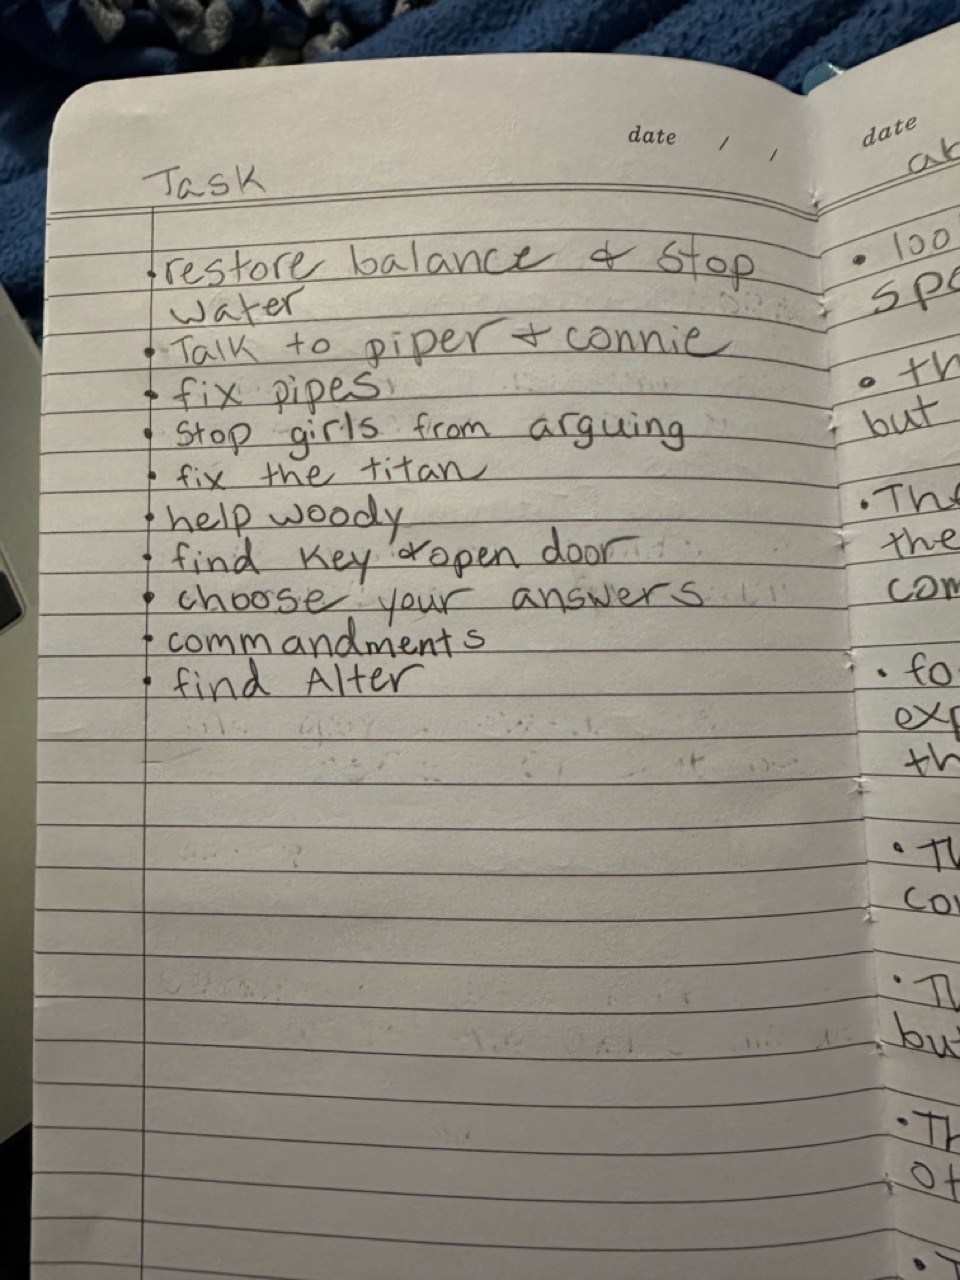 date / /
Task
• restore balance & stop
water
• Talk to piper + connie
• fix pipes
• Stop girls from arguing
• fix the titan
• help woody
• find key & open door
• choose your answers
• commandments
• find Alter
date
•
• th
but
• The
the
•
• 
th
•
•
but
•
•